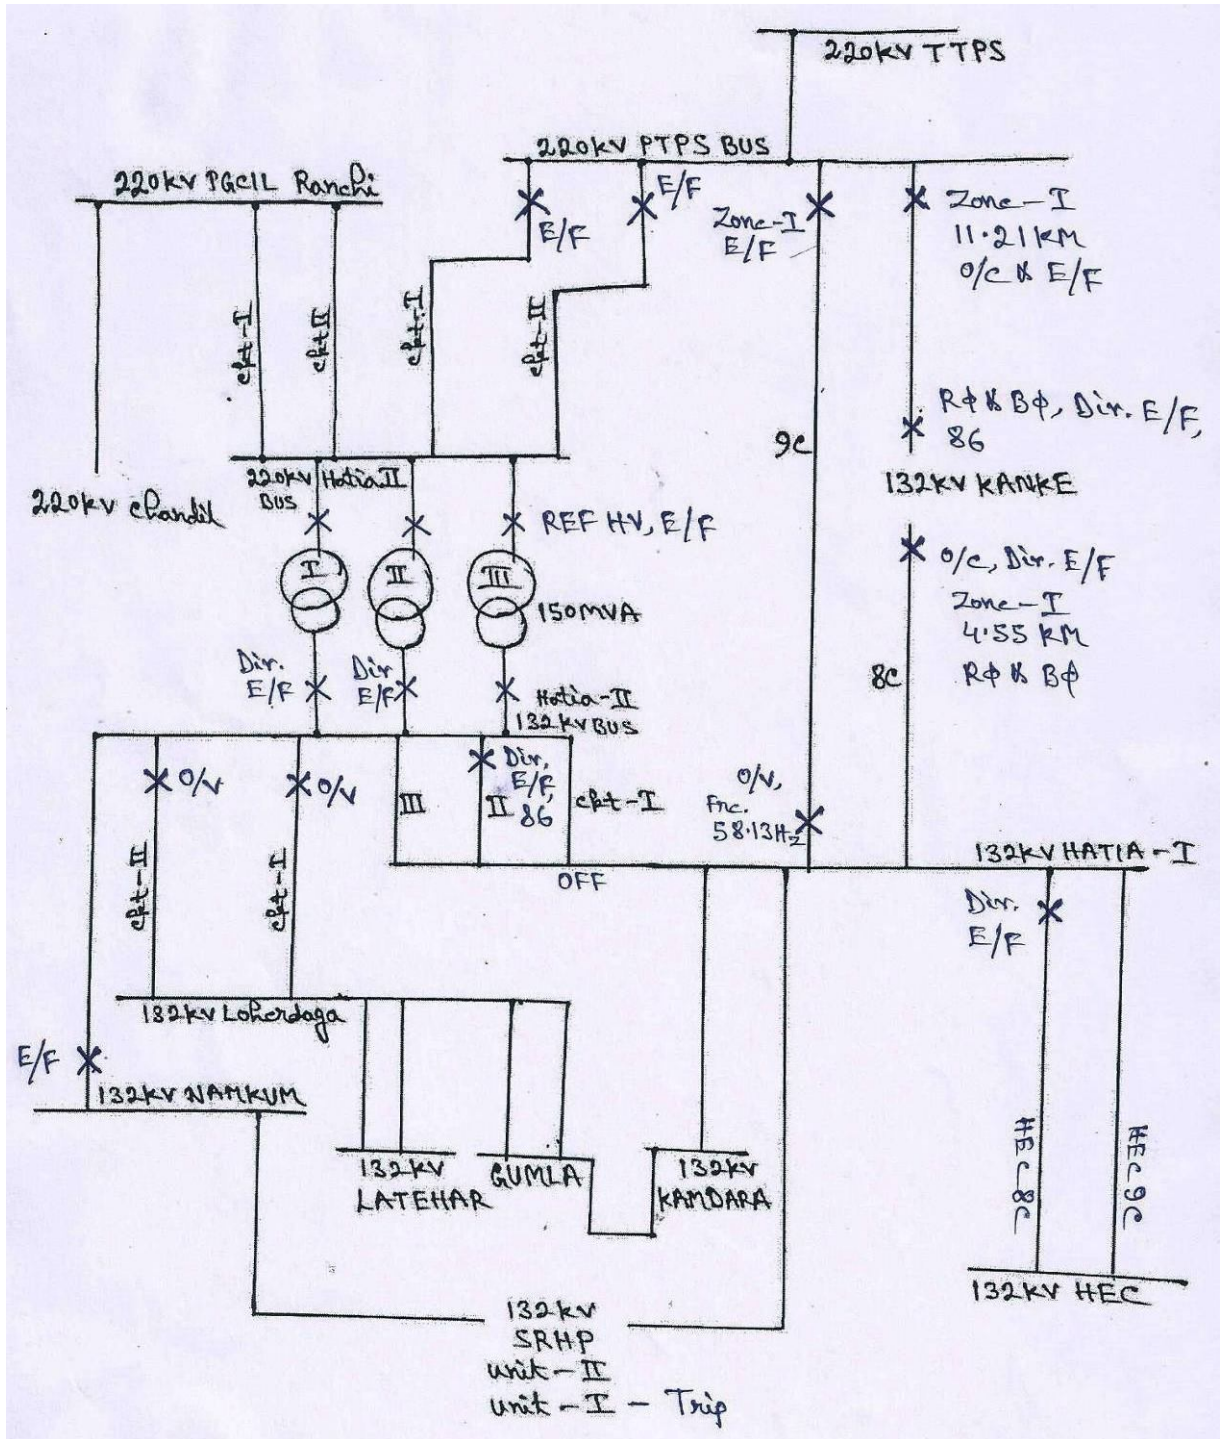 220KV TTPS
220KV PTPS BUS
220KV PGCIL Ranchi
E/F
E/F
Zone-I
E/F
Zone-I
11.21KM
O/C & E/F
ckt-I
ckt II
ckt-I
ckt-II
9C
RΦ & BΦ, Dir. E/F,
86
132KV KANKE
220KV Chandil
220KV Hatia II
BUS
REF HV, E/F
I
II
III
150MVA
O/C, Dir. E/F
Zone-I
4.55 KM
RΦ & BΦ
8C
Dir.
E/F
Dir
E/F
Hatia-II
132KV BUS
O/V
O/V
III
II
Dir,
E/F,
86
ckt-I
O/V,
Frc.
58.13Hz
OFF
132KV HATIA-I
ckt-II
ckt-I
Dir.
E/F
132KV Loherdaga
E/F
132KV NAMKUM
132KV
LATEHAR
GUMLA
132KV
KAMDARA
HEC 8C
HEC 9C
132KV HEC
132KV
SRHP
unit-II
unit-I-Trip